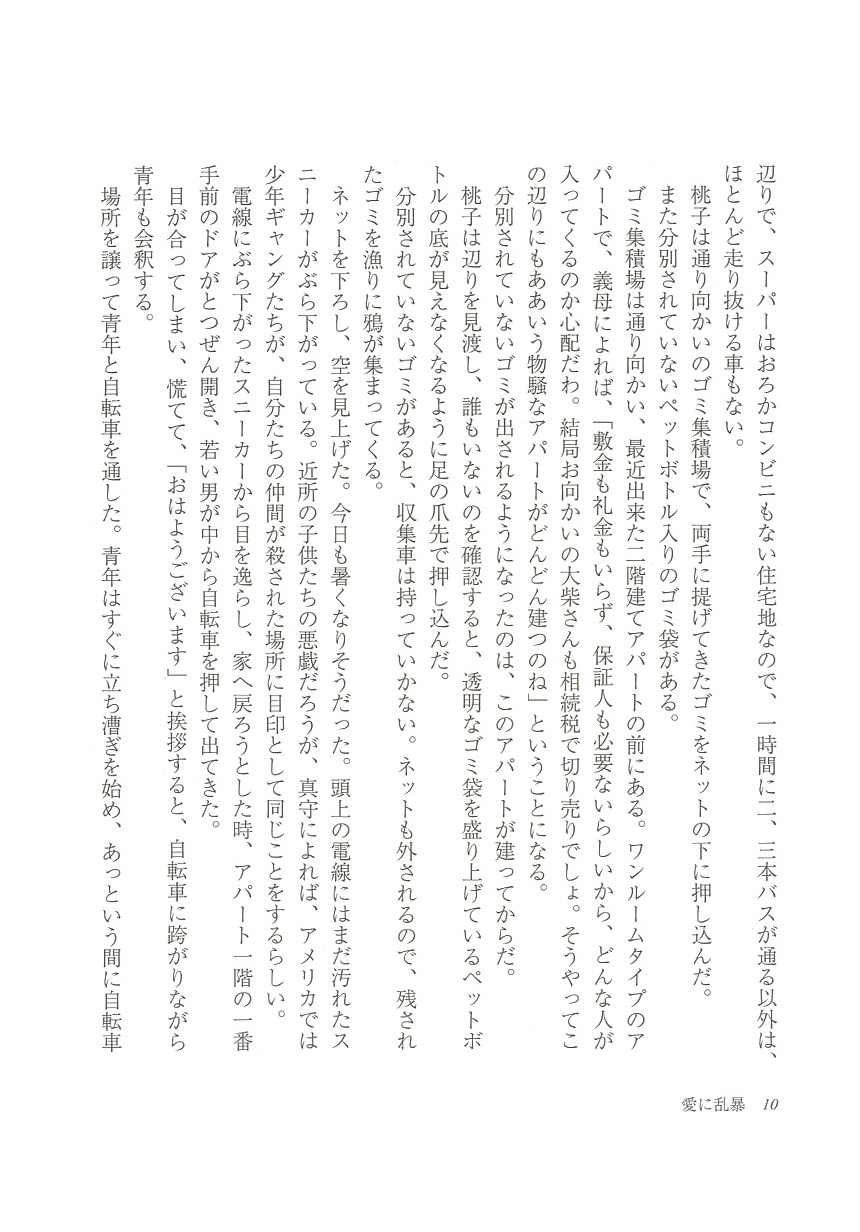 辺りで、スーパーはおろかコンビニもない住宅地なので、一時間に二、三本バスが通る以外は、
ほとんど走り抜ける車もない。
桃子は通り向かいのゴミ集積場で、両手に提げてきたゴミをネットの下に押し込んだ。
また分別されていないペットボトル入りのゴミ袋がある。
ゴミ集積場は通り向かい、最近出来た二階建てアパートの前にある。ワンルームタイプのア
パートで、義母によれば、「敷金も礼金もいらず、保証人も必要ないらしいから、どんな人が
入ってくるのか心配だわ。結局お向かいの大柴さんも相続税で切り売りでしょ。そうやってこ
の辺りにもああいう物騒なアパートがどんどん建つのね」ということになる。
分別されていないゴミが出されるようになったのは、このアパートが建ってからだ。
桃子は辺りを見渡し、誰もいないのを確認すると、透明なゴミ袋を盛り上げているペットボ
トルの底が見えなくなるように足の爪先で押し込んだ。
分別されていないゴミがあると、収集車は持っていかない。ネットも外されるので、残され
たゴミを漁りに鴉が集まってくる。
ネットを下ろし、空を見上げた。今日も暑くなりそうだった。頭上の電線にはまだ汚れたス
ニーカーがぶら下がっている。近所の子供たちの悪戯だろうが、真守によれば、アメリカでは
少年ギャングたちが、自分たちの仲間が殺された場所に目印として同じことをするらしい。
電線にぶら下がったスニーカーから目を逸らし、家へ戻ろうとした時、アパート一階の一番
手前のドアがとつぜん開き、若い男が中から自転車を押して出てきた。
目が合ってしまい、慌てて、「おはようございます」と挨拶すると、自転車に跨がりながら
青年も会釈する。
場所を譲って青年と自転車を通した。青年はすぐに立ち漕ぎを始め、あっという間に自転車
愛に乱暴 10